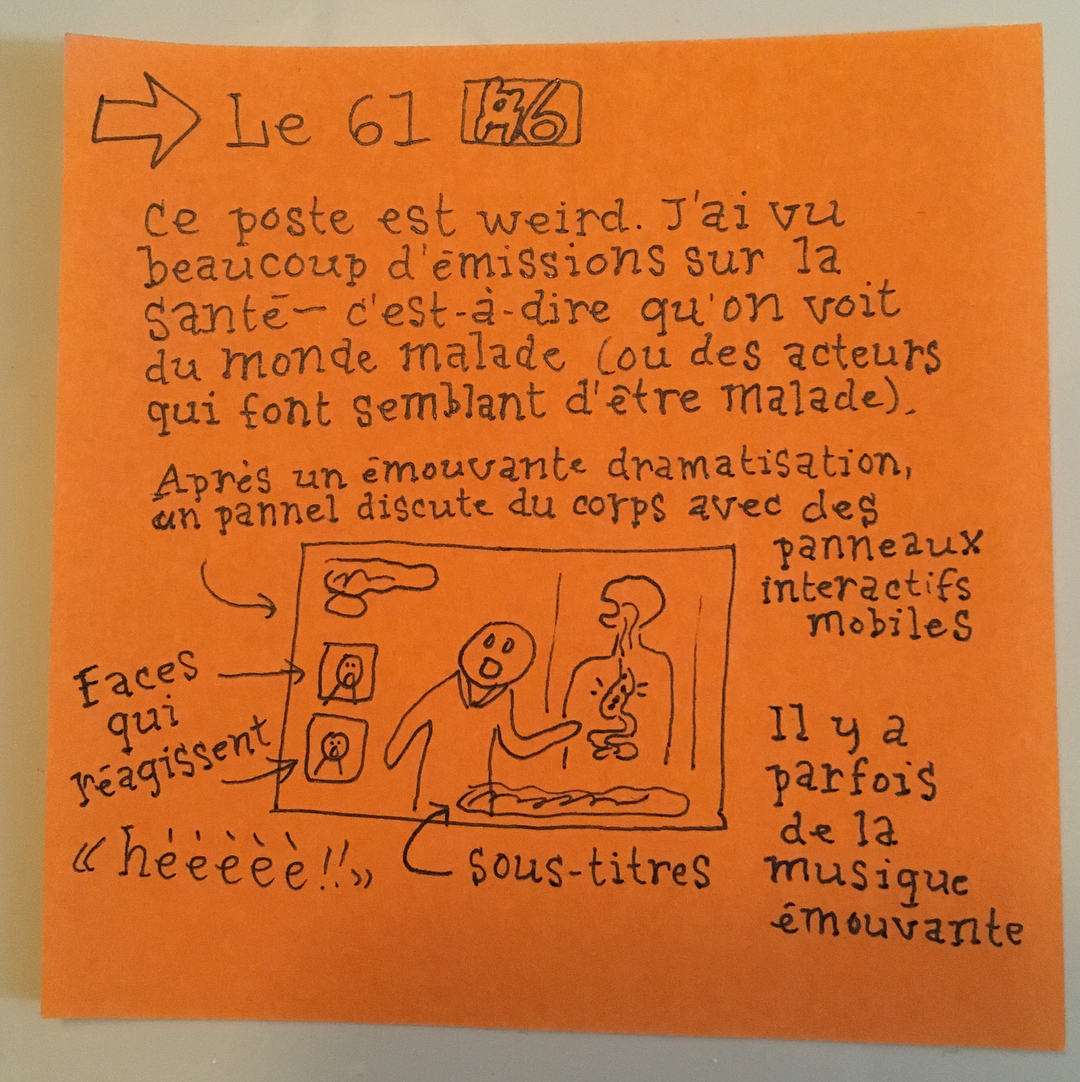 Le 61 #6
Ce poste est weird. J'ai vu
beaucoup d'émissions sur la
santé— c'est-à-dire qu'on voit
du monde malade (ou des acteurs
qui font semblant d'être malade).
Après un émouvante dramatisation,
un pannel discute du corps avec des
panneaux
interactifs
mobiles
Faces
qui
réagissent
«hééèèè!!»
sous-titres
Il y a
parfois
de la
musique
émouvante